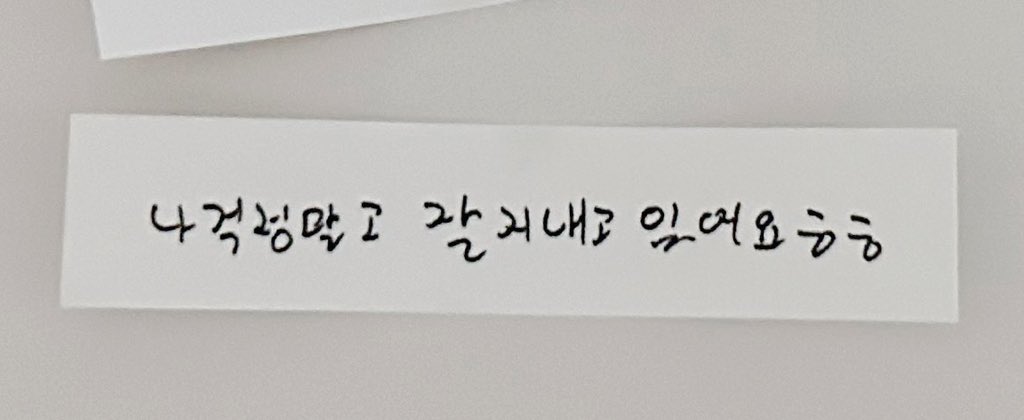 나 걱정말고 잘 지내고 있어요ㅎㅎ